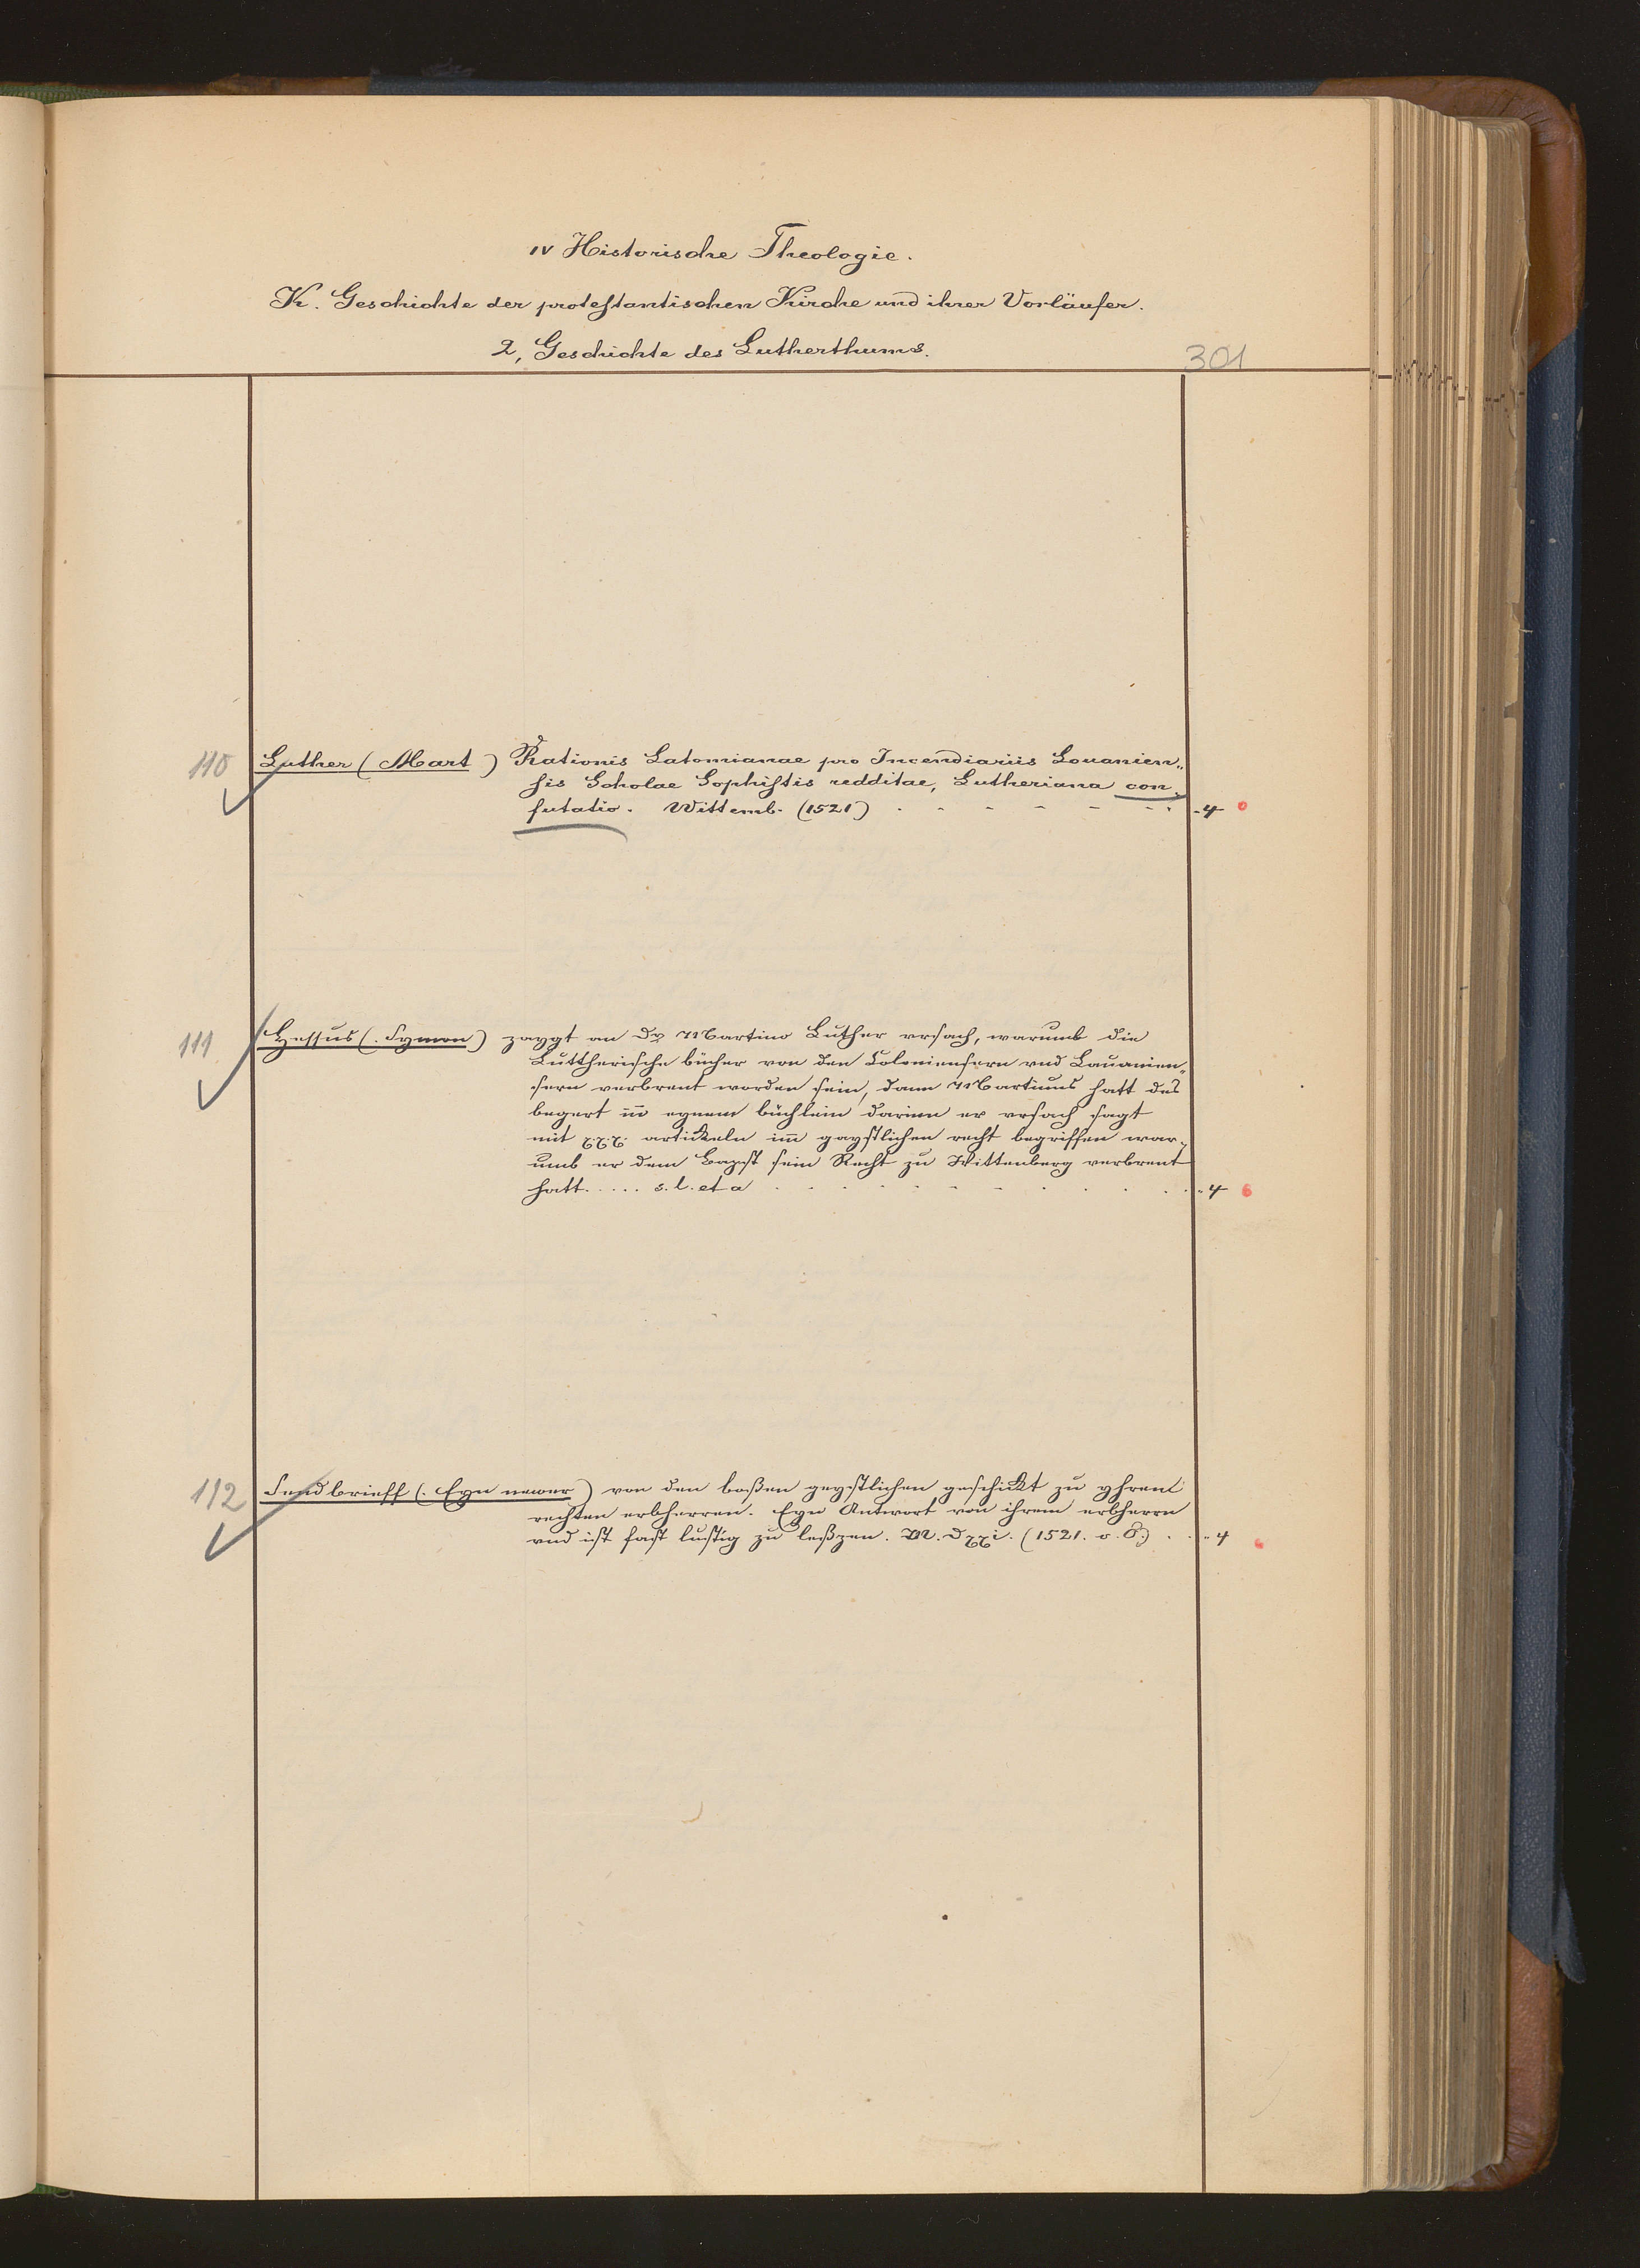 IV Historische Theologie.
K. Geschichte der protestantischen Kirche und ihrer Vorläufer.
2, Geschichte des Lutherthums.
301
110 Luther (Mart) Rationis Latomianae pro Incendiariis Louanien„
sis Scholae Sophistis redditae, Lutheriana con„
futatio. Wittemb. (1521) . - - - - - - . -4 0
111 Hessus (. Symon) zaygt an Dr Martino Luther vrsach, warumb die
Luttherische bücher von den Coloniensern vnd Lauanien„
sern verbrent worden sein, dann Martinus hatt das
begert in̄ eynem büchlein darinn er vrsach sagt
mit xxx. artickeln im̄ gaystlichen recht begriffen war„
umb er dem Bapst sein Recht zu Wittenberg verbrent
hatt..... s. l. et a . . . . . . . . . . . „4 6
112 Sendbrieff (. Eyn newer) von den boßen geystlichen geschickt zu yhrem
rechten erbherren. Eyn Antwort von ihrem erbherrn
vnd ist fast lustig zu leßzen. M. Dxxi. (1521. o. O.) . . „4